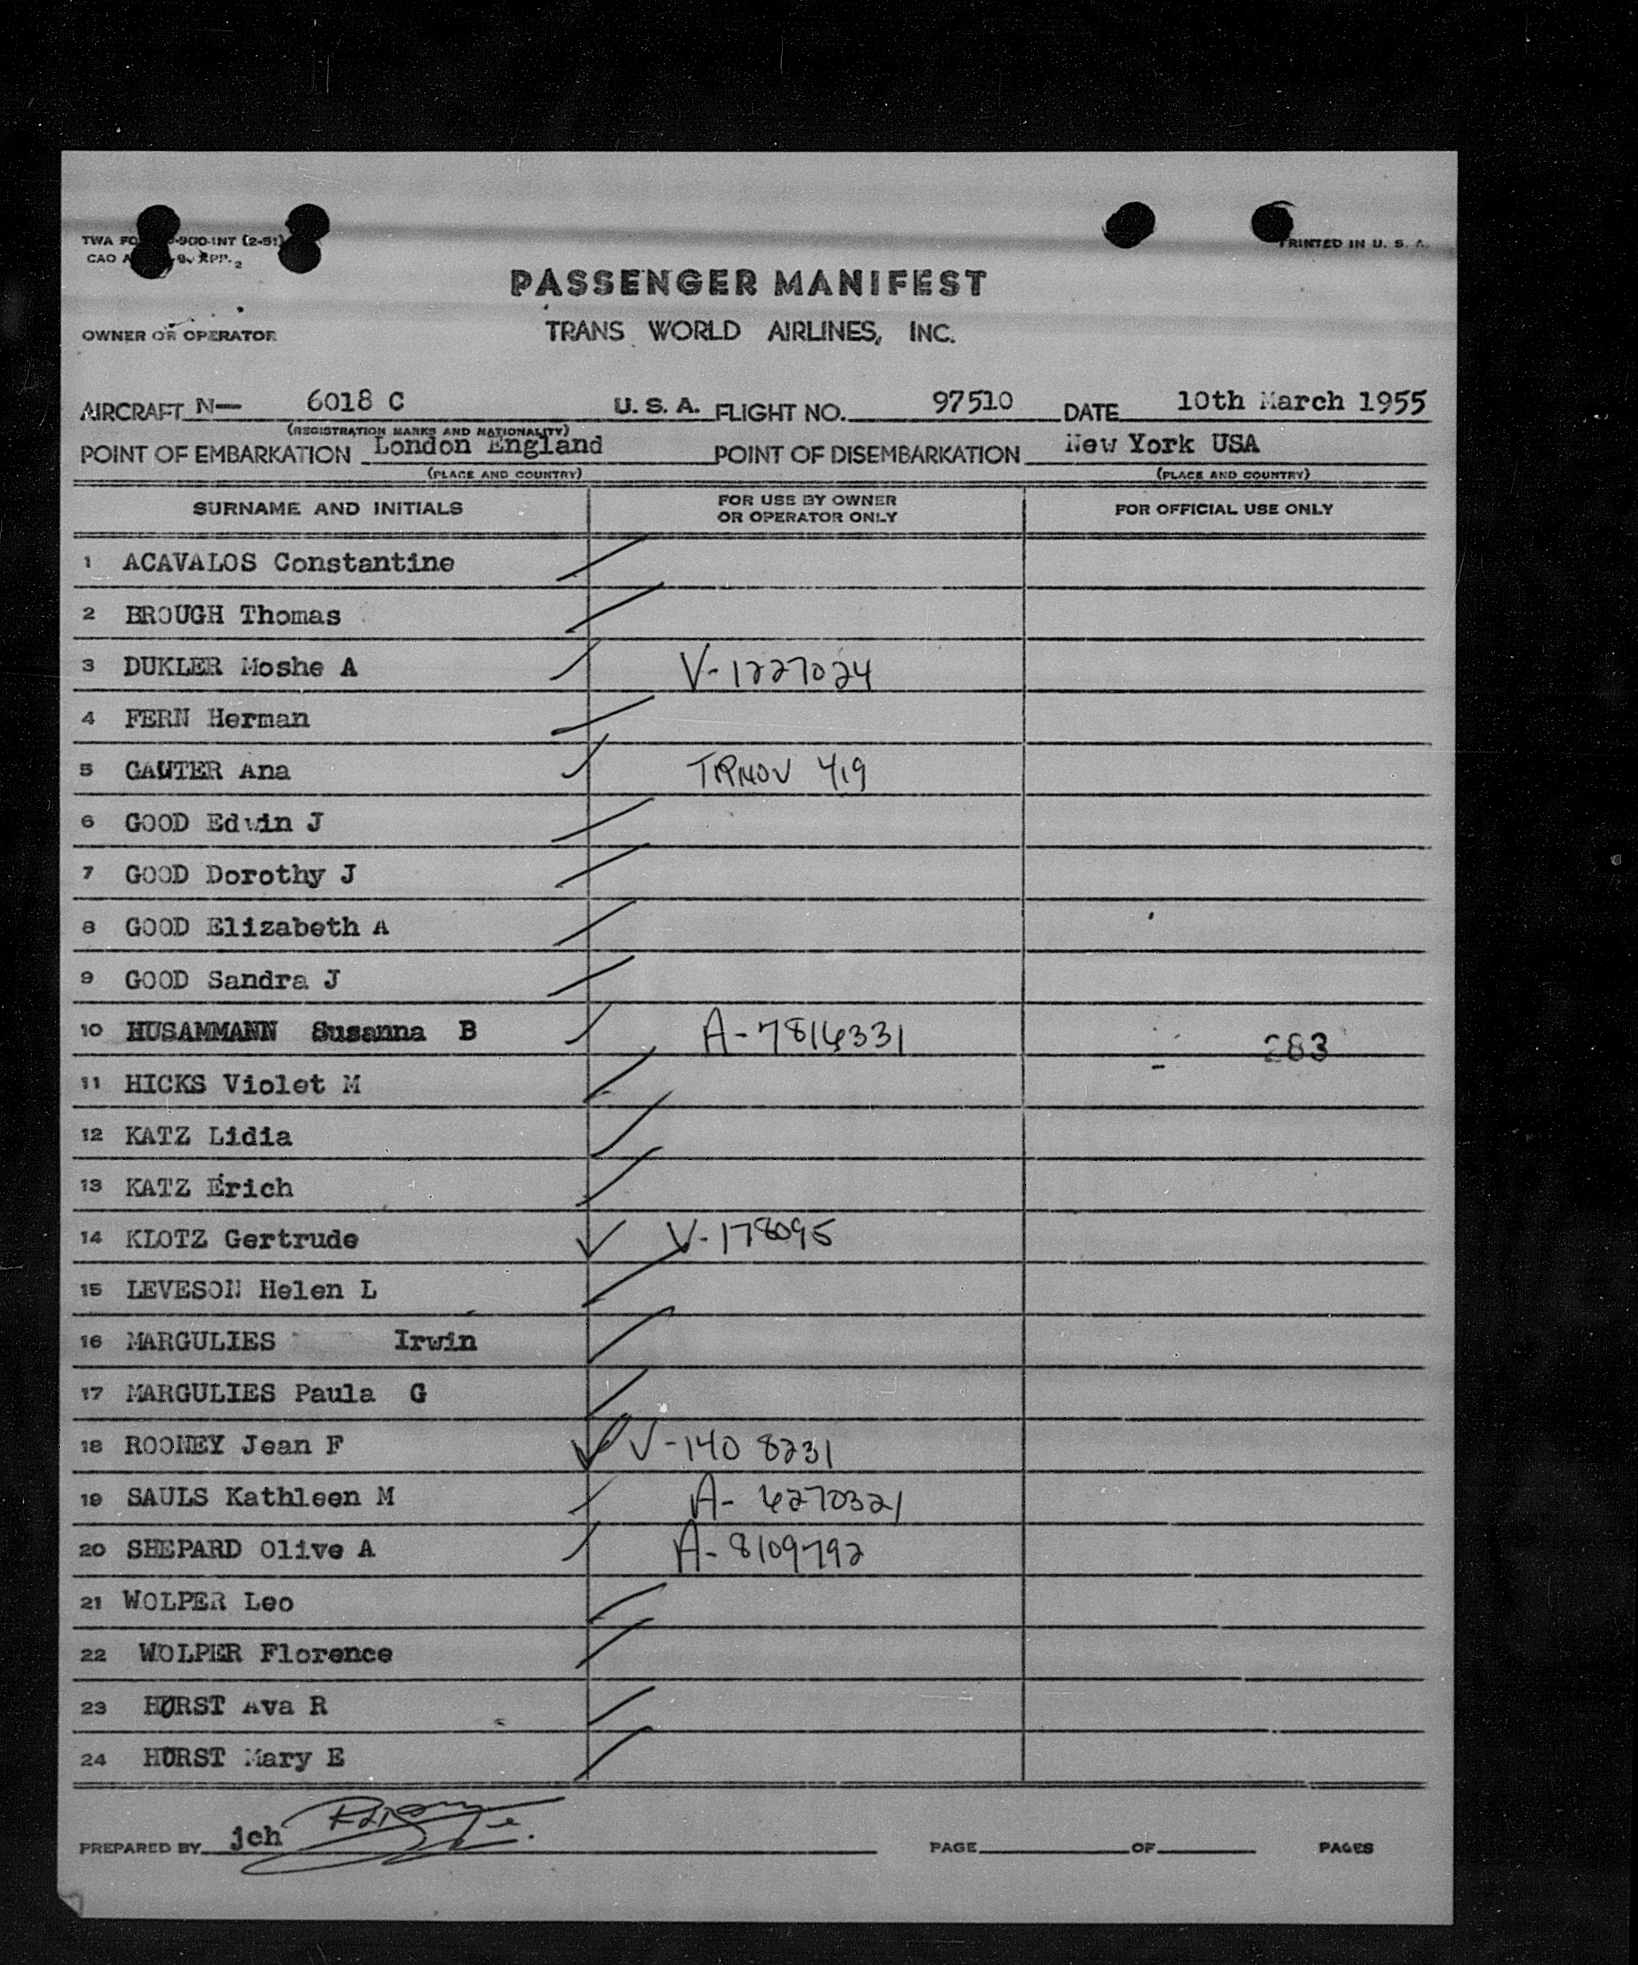 TWA FO 900-INT (2-51)
PRINTED IN U. S. A.
CAO A
PASSENGER MANIFEST
OWNER OR OPERATOR TRANS WORLD AIRLINES, INC.
AIRCRAFT N— 6018 C U. S. A. FLIGHT NO. 97510 DATE 10th March 1955
(REGISTRATION MARKS AND NATIONALITY)
POINT OF EMBARKATION London England POINT OF DISEMBARKATION New York USA
(PLACE AND COUNTRY) (PLACE AND COUNTRY)
SURNAME AND INITIALS FOR USE BY OWNER OR OPERATOR ONLY FOR OFFICIAL USE ONLY
1 ACAVALOS Constantine
2 BROUGH Thomas
3 DUKLER Moshe A V-1227024
4 FERN Herman
5 GAUTER Ana 
6 GOOD Edwin J
7 GOOD Dorothy J
8 GOOD Elizabeth A
9 GOOD Sandra J
10 HUSAMMANN Susanna B A-7816331 283
11 HICKS Violet M
12 KATZ Lidia
13 KATZ Erich
14 KLOTZ Gertrude V-178095
15 LEVESON Helen L
16 MARGULIES Irwin
17 MARGULIES Paula G
18 ROONEY Jean F V-140 8231
19 SAULS Kathleen M A-6270321
20 SHEPARD Olive A A-8109792
21 WOLPER Leo
22 WOLPER Florence
23 HURST Ava R
24 HURST Mary E
PREPARED BY jch PAGE OF PAGES